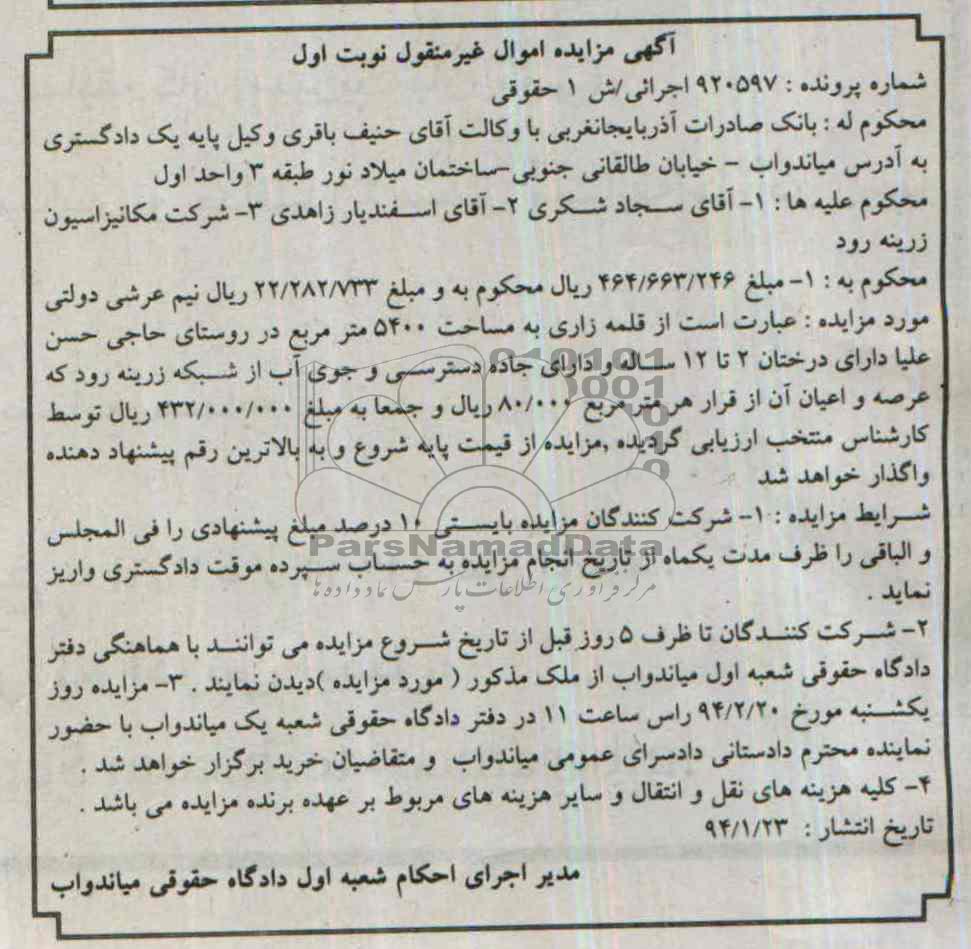 آگهی مزایده اموال غیرمنقول نوبت اول
شماره پرونده : ۹۲۰۵۹۷ اجرائی/ش ۱ حقوقی
محکوم له : بانک صادرات آذربایجانغربی با وکالت آقای حنیف باقری وکیل پایه یک دادگستری
به آدرس میاندواب – خیابان طالقانی جنوبی-ساختمان میلاد نور طبقه ۳ واحد اول
محکوم علیه ها : ۱- آقای سجاد شکری ۲- آقای اسفندیار زاهدی ۳- شرکت مکانیزاسیون
زرینه رود
محکوم به : ۱- مبلغ ۴۶۴/۶۶۳/۲۴۶ ریال محکوم به و مبلغ ۲۲/۲۸۲/۷۳۳ ریال نیم عرشی دولتی
مورد مزایده : عبارت است از قلمه زاری به مساحت ۵۴۰۰ متر مربع در روستای حاجی حسن
علیا دارای درختان ۲ تا ۱۲ ساله و دارای جاده دسترسی و جوی آب از شبکه زرینه رود که
عرصه و اعیان آن از قرار هر متر مربع ۸۰/۰۰۰ ریال و جمعا به مبلغ ۴۳۲/۰۰۰/۰۰۰ ریال توسط
کارشناس منتخب ارزیابی گردیده ,مزایده از قیمت پایه شروع و به بالاترین رقم پیشنهاد دهنده
واگذار خواهد شد
شرایط مزایده : ۱- شرکت کنندگان مزایده بایستی ۱۰ درصد مبلغ پیشنهادی را فی المجلس
ParsNamadData
و الباقی را ظرف مدت یکماه از تاریخ انجام مزایده به حساب سپرده موقت دادگستری واریز
مرکز فرآوری اطلاعات پارس نماد داده ها
نماید .
۲- شرکت کنندگان تا ظرف ۵ روز قبل از تاریخ شروع مزایده می توانند با هماهنگی دفتر
دادگاه حقوقی شعبه اول میاندواب از ملک مذکور ( مورد مزایده )دیدن نمایند . ۳- مزایده روز
یکشنبه مورخ ۹۴/۲/۲۰ راس ساعت ۱۱ در دفتر دادگاه حقوقی شعبه یک میاندواب با حضور
نماینده محترم دادستانی دادسرای عمومی میاندواب و متقاضیان خرید برگزار خواهد شد .
۴- کلیه هزینه های نقل و انتقال و سایر هزینه های مربوط بر عهده برنده مزایده می باشد .
تاریخ انتشار : ۹۴/۱/۲۳
مدیر اجرای احکام شعبه اول دادگاه حقوقی میاندواب